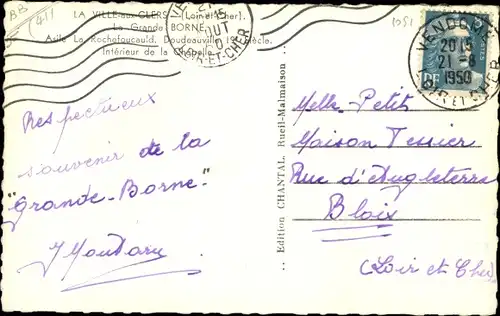 BB
(41)
LA VILLE-aux-CLERS (Loir-et-Cher)
La Grande BORNE
Asile La Rochefoucauld, Doudeauville siècle.
Intérieur de la Chapelle
LOIR-ET-CHER
1051
VENDOME
20 15
21-8
1950
LOIR ET CHER
RF
Respectueux
souvenir de la
"Grande-Borne"
Edition CHANTAL, Rueil-Malmaison
Melle Petit
Maison Tessier
Rue d'Angleterre
Blois
(Loir et Cher)